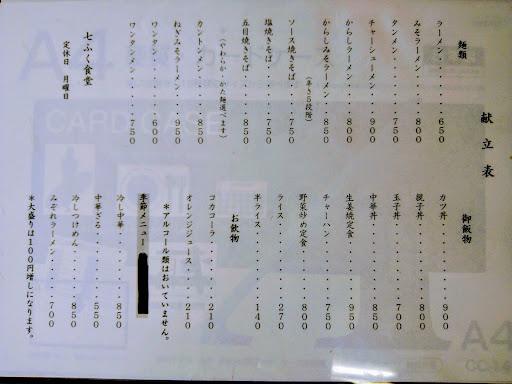 献立表
麺類
ラーメン・・・・・・650
みそラーメン・・・・800
タンメン・・・・・・750
チャーシューメン・・900
からしラーメン・・・800
からしみそラーメン・850
(辛さ5段階)
ソース焼きそば・・・750
塩焼きそば・・・・・750
五目焼きそば・・・・850
*(やわらか・かた麺選べます)
カントンメン・・・・850
ねぎみそラーメン・・950
ワンタン・・・・・・600
ワンタンメン・・・・750
七ふく食堂
定休日 月曜日
御飯物
カツ丼・・・・・・・900
親子丼・・・・・・・800
玉子丼・・・・・・・700
中華丼・・・・・・・850
生姜焼定食・・・・・950
チャーハン・・・・・750
野菜炒め定食・・・・800
ライス・・・・・・・270
半ライス・・・・・・140
お飲物
コカコーラ・・・・・210
オレンジジュース・・210
*アルコール類はおいていません。
季節メニュー
冷し中華・・・・・・850
中華ざる・・・・・・550
冷しつけめん・・・・850
みそれラーメン・・・700
*大盛りは100円増しになります。
A4
CARD CASE
A4